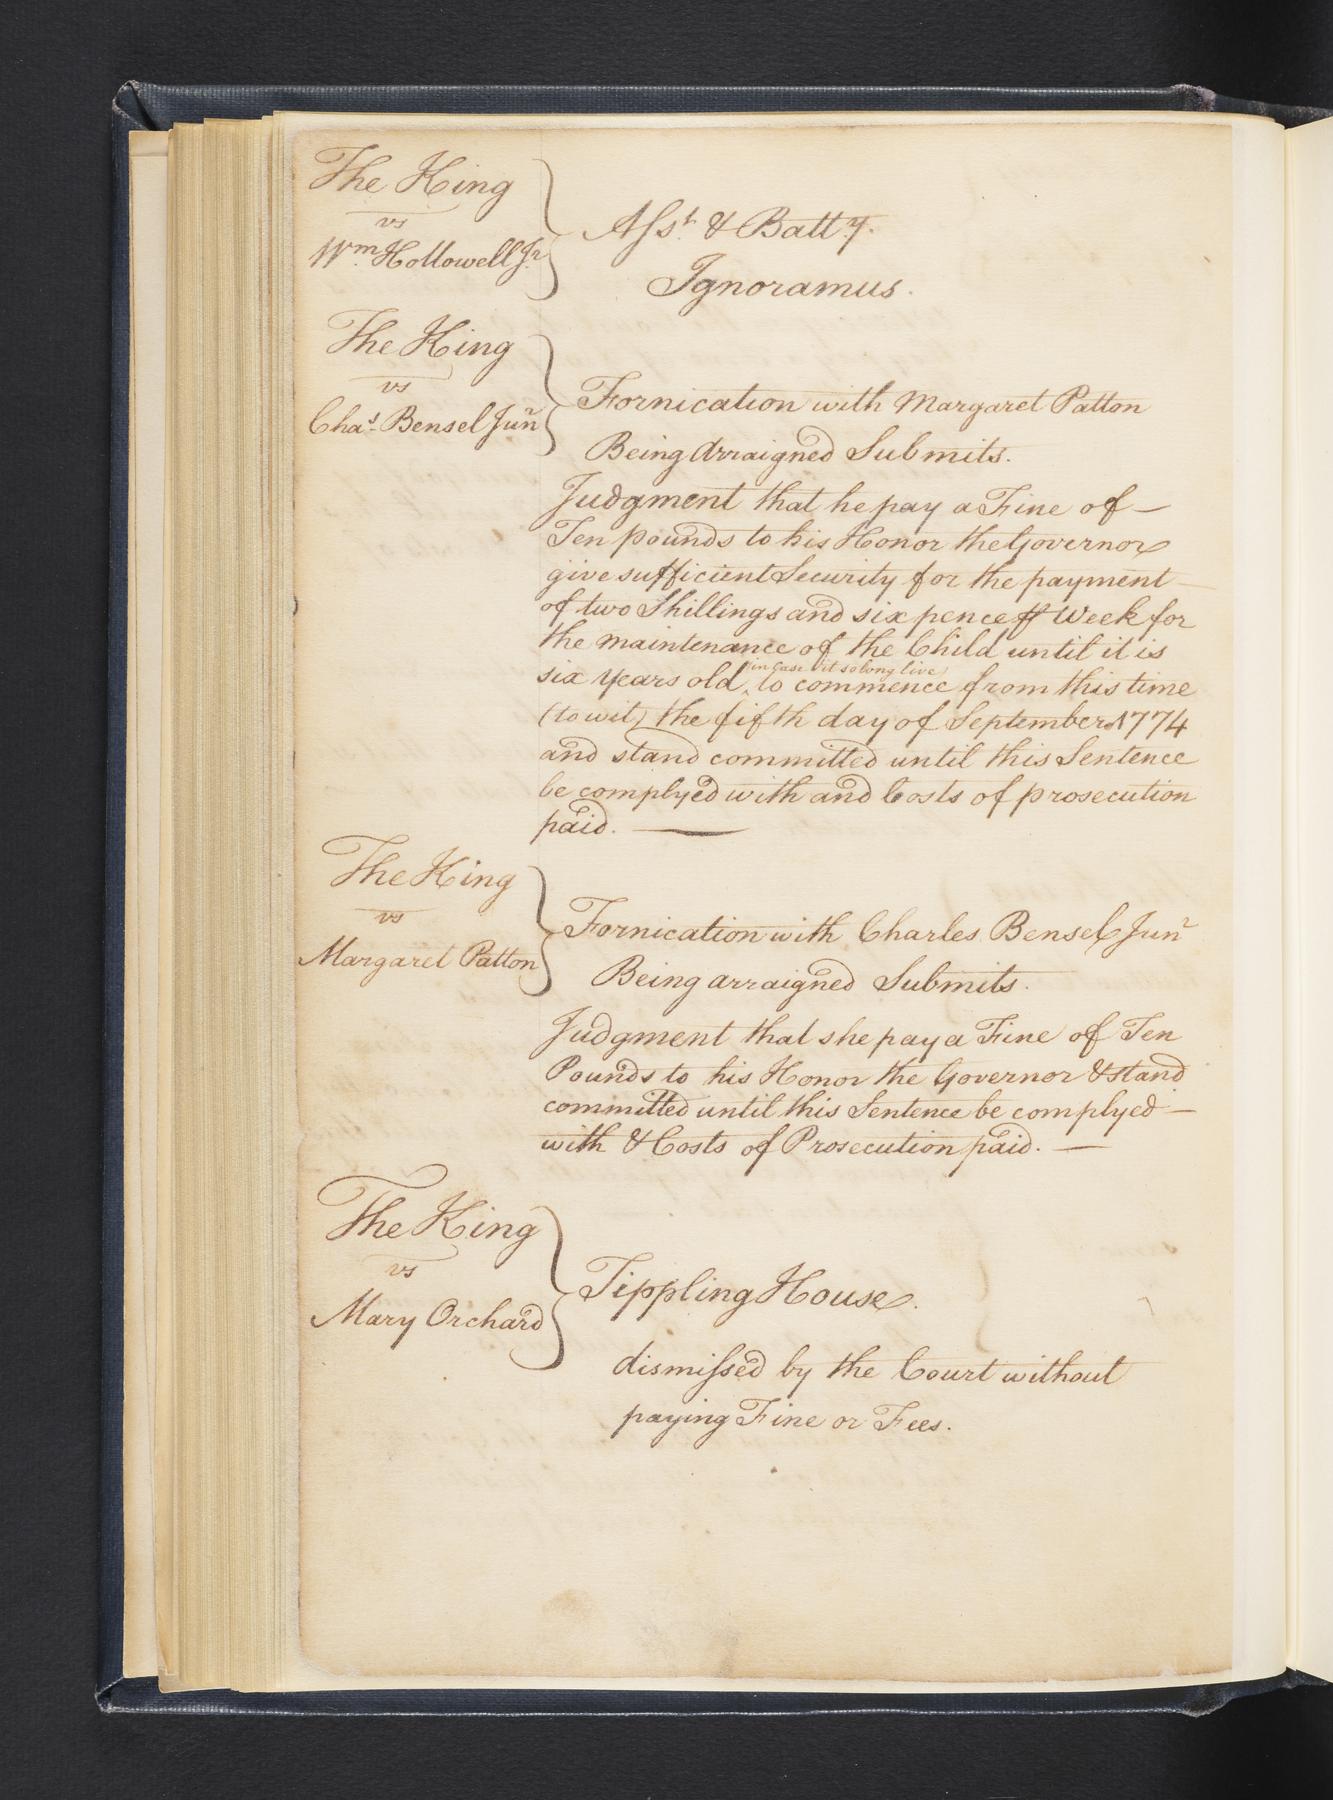 The King
vs
Wm Hollowell Jr
Asst. & Batty.
Ignoramus.
The King
vs
Chas. Bensel Junr
Fornication with Margaret Patton
Being Arraigned Submits.
Judgment that he pay a Fine of —
Ten pounds to his Honor the Governor
give sufficient Security for the payment
of two Shillings and six pence ⅌ Week for
the maintenance of the Child until it is
in Case it so long live
six years old ‸ to commence from this time
(to wit) the fifth day of September 1774
and stand committed until this Sentence
be complyed with and Costs of prosecution
paid. —
The King
vs
Margaret Patton
Fornication with Charles Bensel Junr
Being arraigned Submits.
Judgment that she pay a Fine of Ten
Pounds to his Honor the Governor & stand
committed until this Sentence be complyed —
with & Costs of Prosecution paid. —
The King
vs
Mary Orchard
Tippling House.
dismissed by the Court without
paying Fine or Fees.